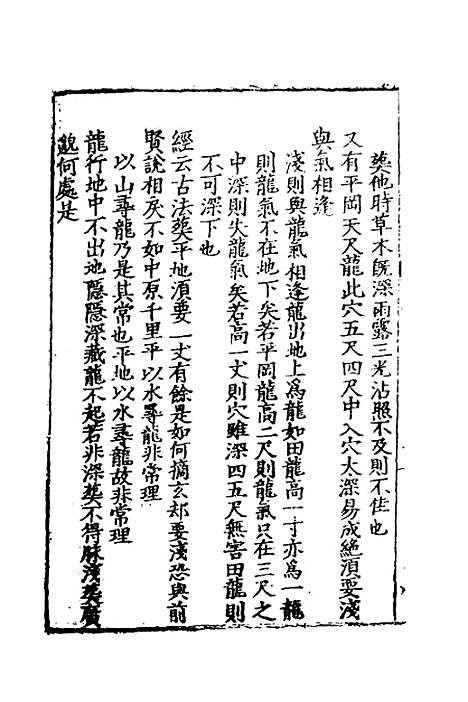 葬他時草木旣深雨露三光沾照不及則不佳也
又有平岡天尺龍此穴五尺四尺中入穴太深易成絶湏要淺
與氣相逢
淺則與龍氣相逢龍出地上爲龍如田龍高一寸亦爲一龍
則龍氣不在地下矣若平岡龍高二尺則龍氣只在三尺之
中深則失龍氣矣若高一丈則穴雖深四五尺無害田龍則
不可深下也
經云古法葬平地湏要一丈有餘是如何摘玄却要淺恐與前
賢說相戾不如中原千里平以水尋龍非常理
以山尋龍乃是其常也平地以水尋龍故非常理
龍行地中不出地隠隠深藏龍不起若非深葬不得脉淺葬廣
觀何處是